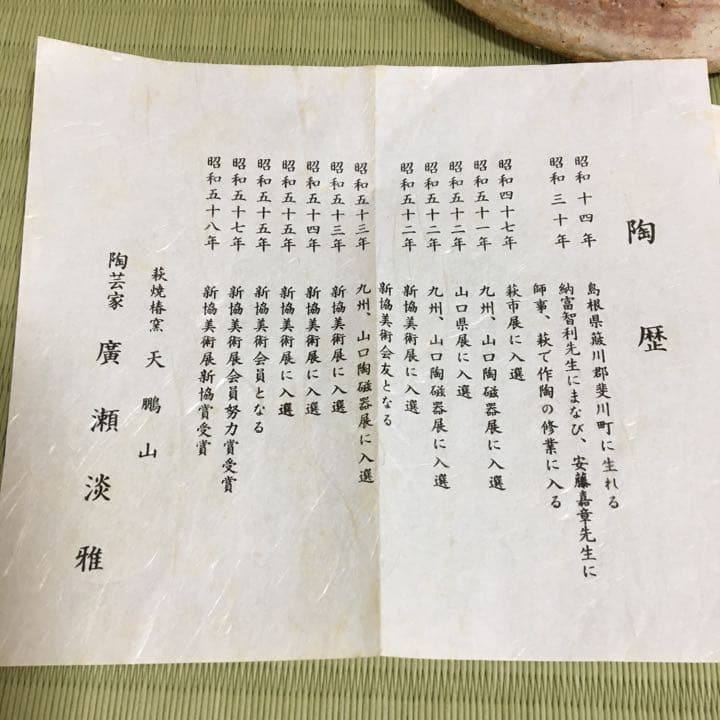 陶歴
昭和十四年 島根県簸川郡斐川町に生れる
昭和三十年 納富智利先生にまなび、安藤嘉章先生に
師事、萩で作陶の修業に入る
昭和四十七年 萩市展に入選
昭和五十一年 九州、山口陶磁器展に入選
昭和五十二年 山口県展に入選
昭和五十二年 九州、山口陶磁器展に入選
昭和五十二年 新協美術展に入選
新協美術会友となる
昭和五十三年 九州、山口陶磁器展に入選
昭和五十三年 新協美術展に入選
昭和五十四年 新協美術展に入選
昭和五十五年 新協美術展に入選
昭和五十五年 新協美術会員となる
昭和五十七年 新協美術展会員努力賞受賞
昭和五十八年 新協美術展新協賞受賞
萩焼椿窯 天鵬山
陶芸家 廣瀬淡雅